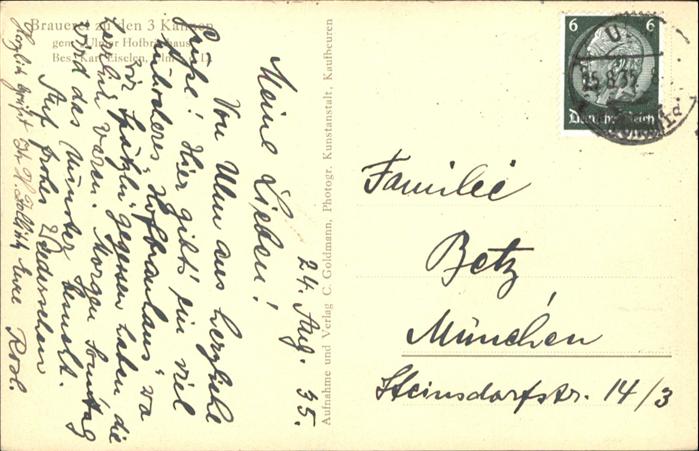 Brauerei zu den 3 Kannen
gen. Ulmer Hofbräuhaus
Bes. Karl Eiselen, Ulm a. D.
24. Aug. 35.
Meine Lieben!
Von Ulm aus herzliche
Grüße! Hier gibt's ein viel
nobleres „Hofbräuhaus", wo
wir Spätzln gegessen haben die
sehr gut waren. Morgen Sonntag
wird das Münster
Auf frohes Wiedersehen
Herzlich grüßt Eure Rosl.
Aufnahme und Verlag C. Goldmann, Photogr. Kunstanstalt, Kaufbeuren
6 6
Deutsches Reich
ULM
25.8.35
(Donau)
Familie
Betz,
München
Steinsdorfstr. 14/3